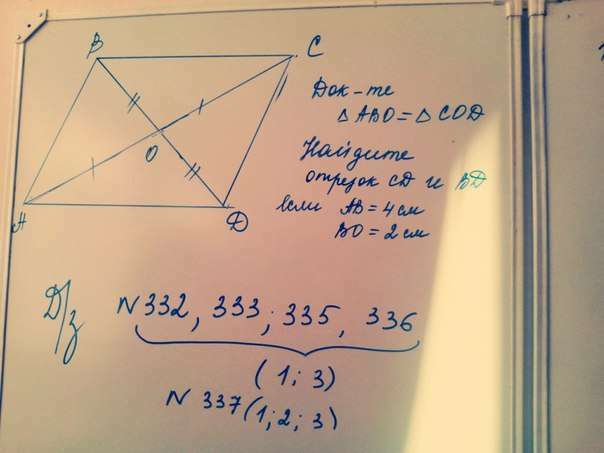 B
C
O
A
D
Док-те
△ ABO = △ COD
Найдите
отрезок CD и BD
если AB = 4 см
BO = 2 см
Д/з
N 332, 333; 335, 336
(1; 3)
N 337 (1; 2; 3)